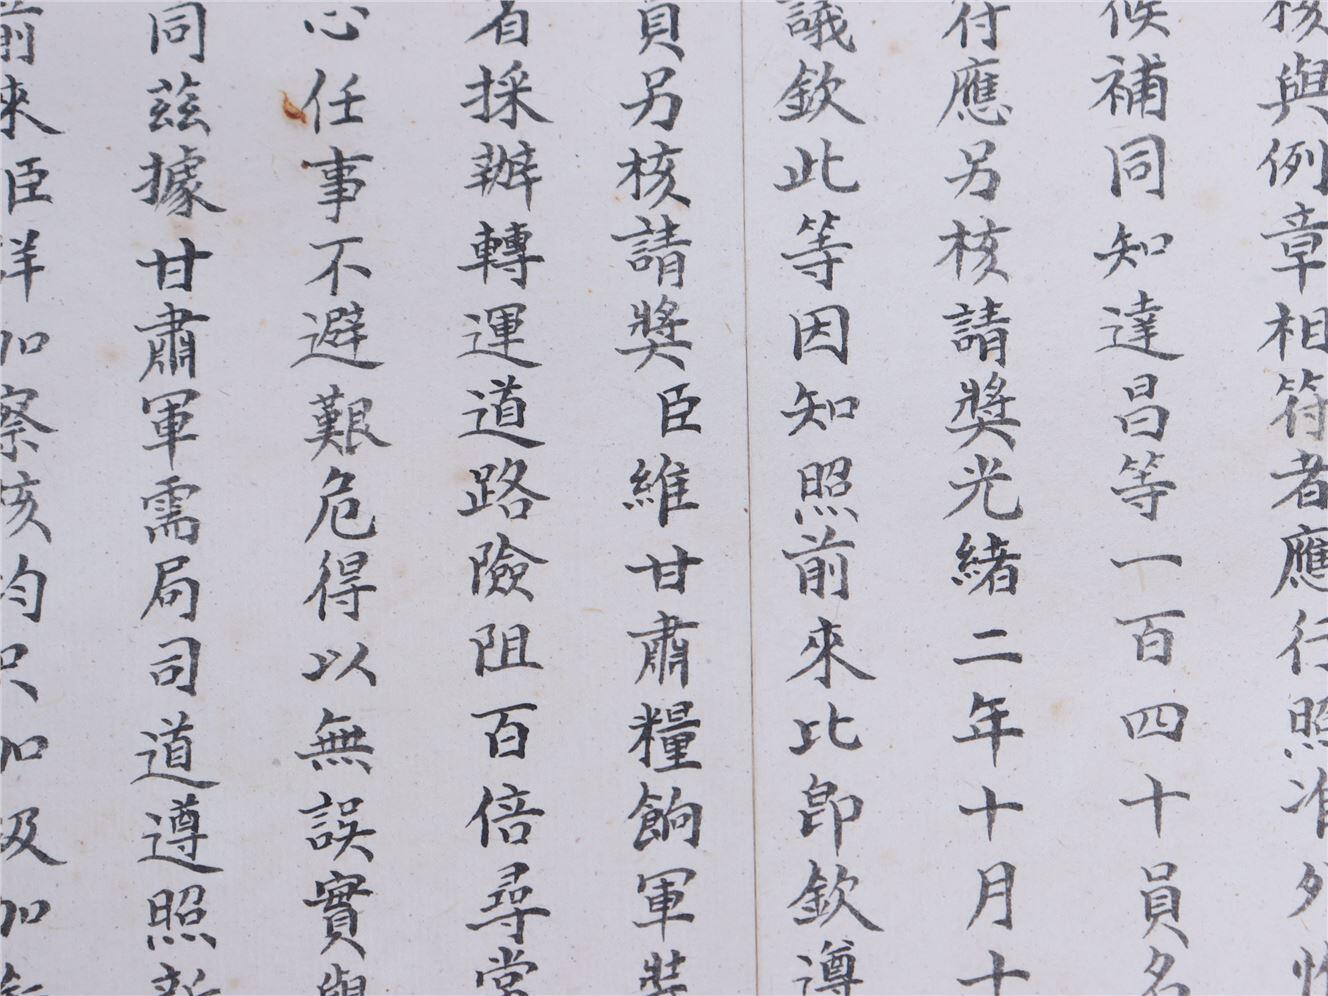 核與例章相符者應行照准外惟
候補同知達昌等一百四十員名
付應另核請獎光緒二年十月十
議欽此等因知照前來比即欽遵
員另核請獎臣維甘肅糧餉軍裝
省採辦轉運道路險阻百倍尋常
心任事不避艱危得以無誤實與
同茲據甘肅軍需局司道遵照新
前來臣詳加察核均只加級加銜